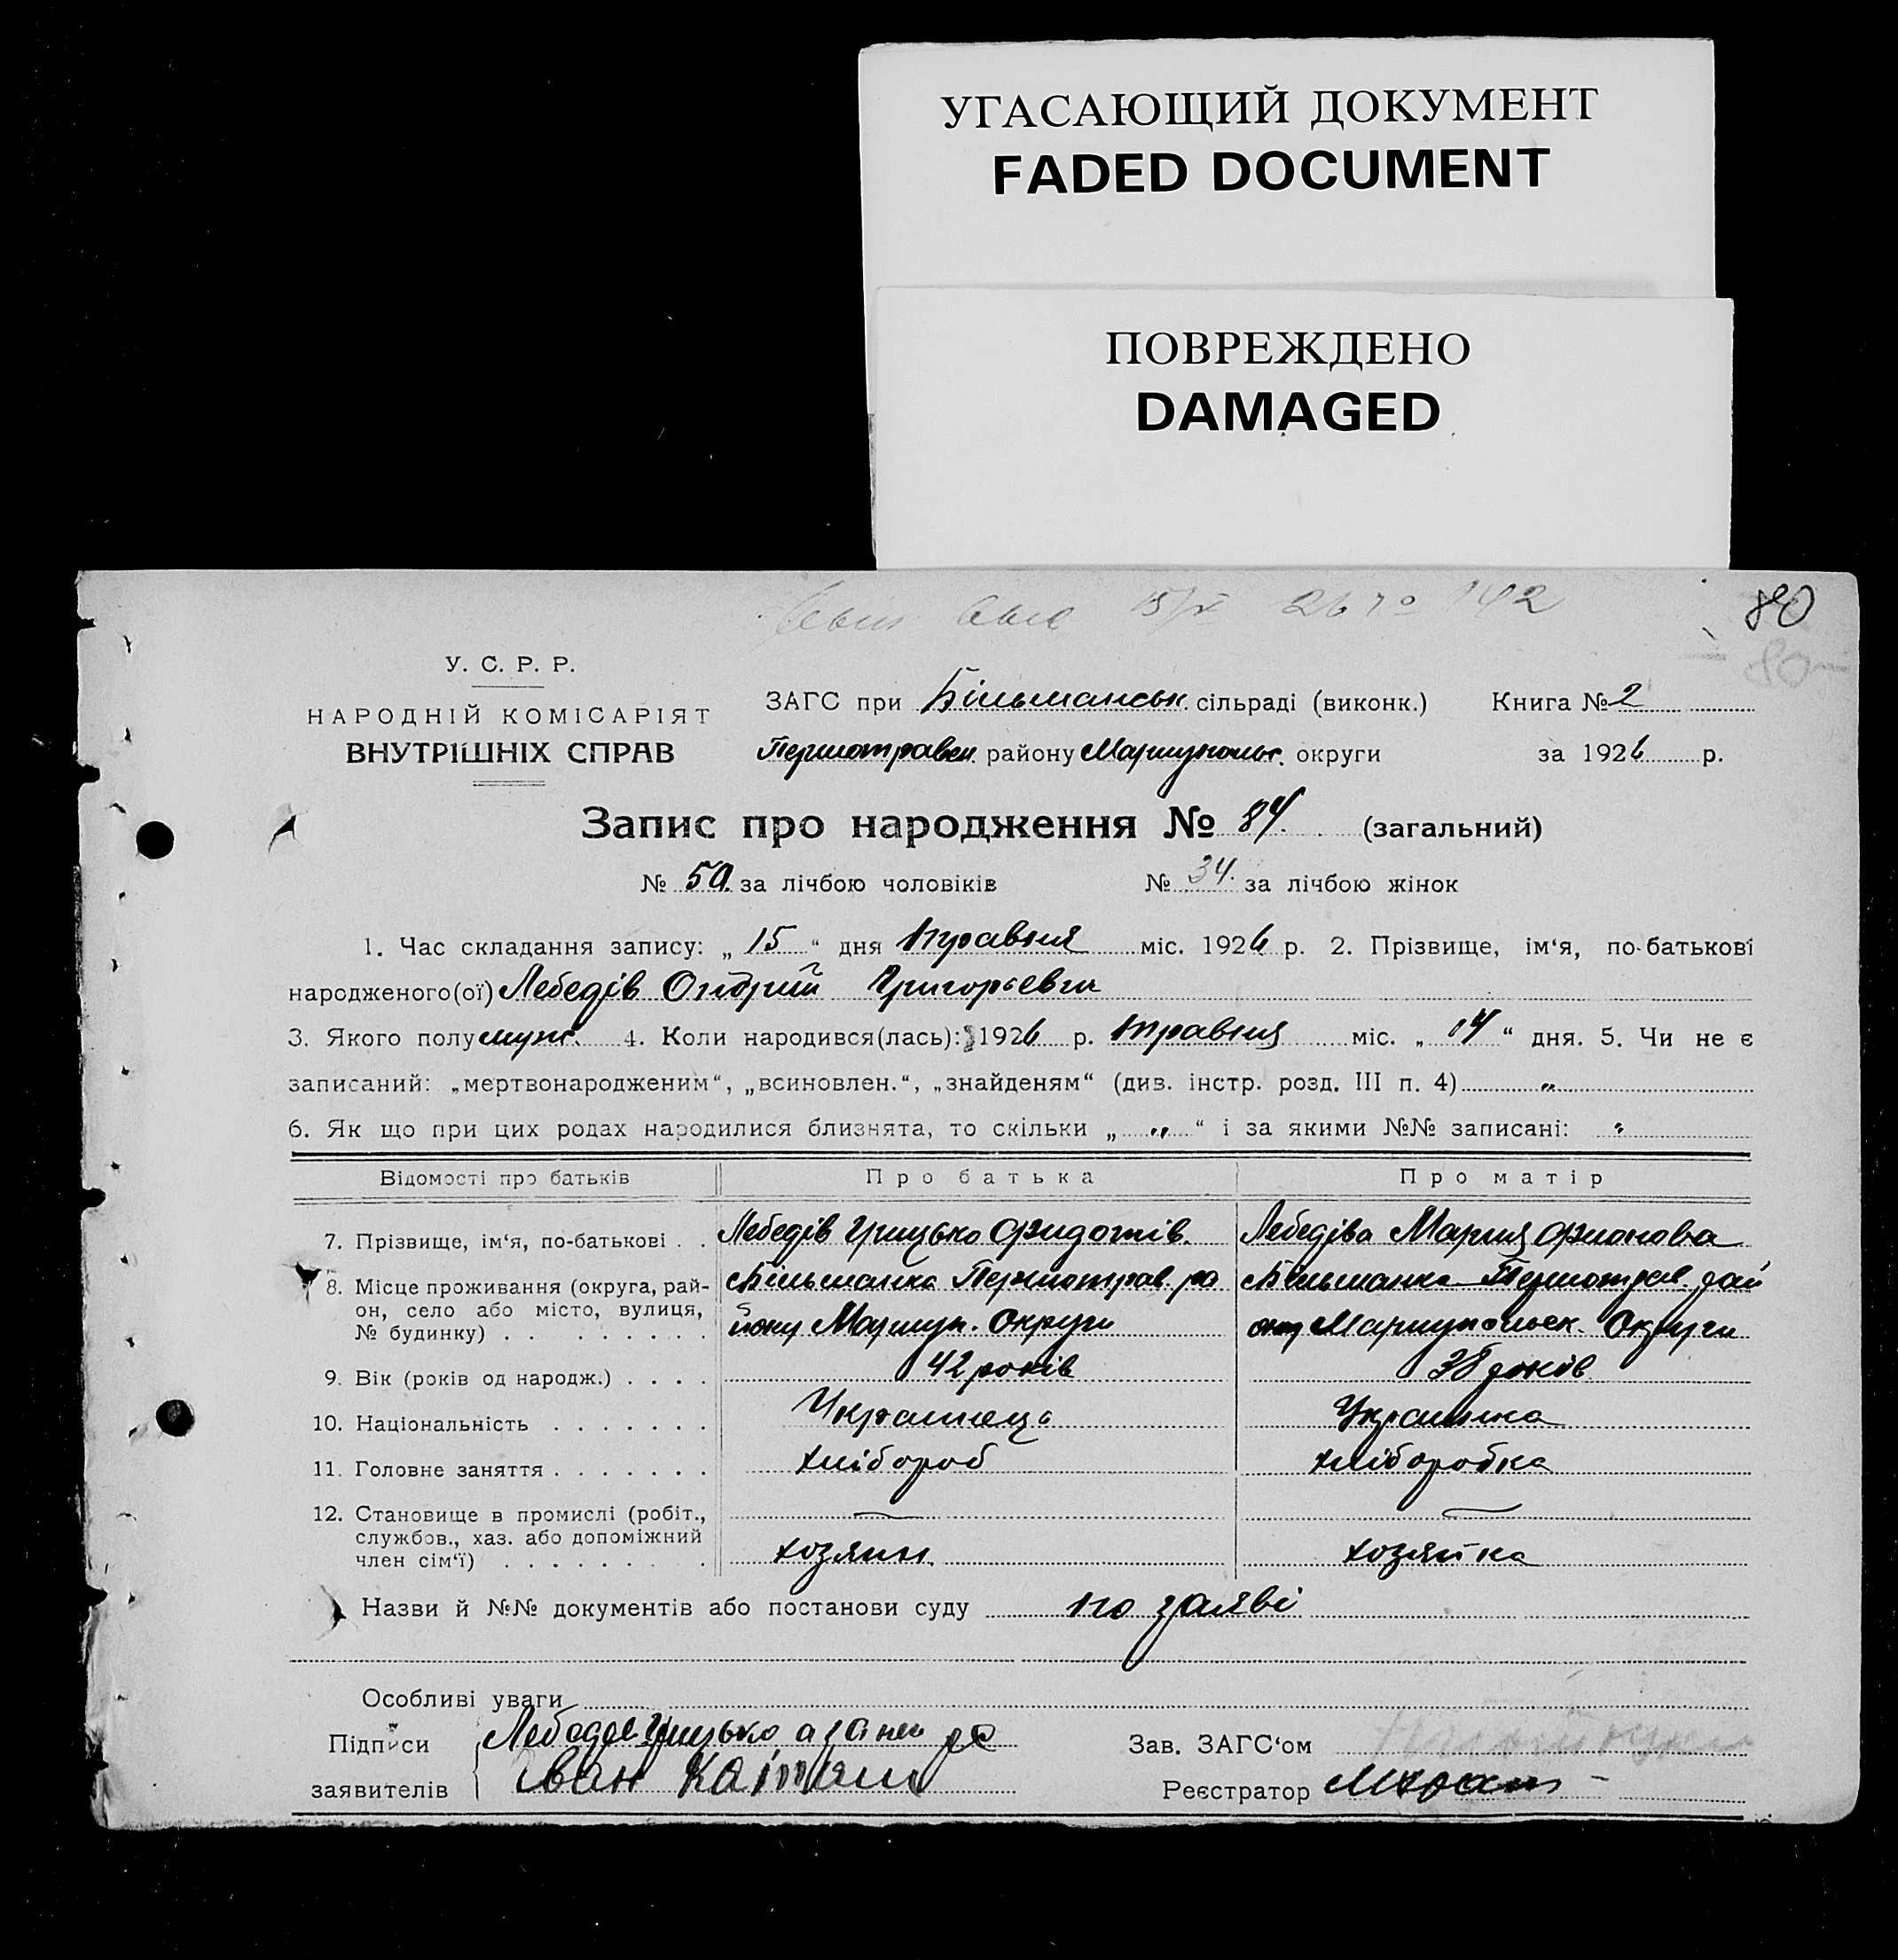 УГАСАЮЩИЙ ДОКУМЕНТ
FADED DOCUMENT
ПОВРЕЖДЕНО
DAMAGED
80
80
У. С. Р. Р.
НАРОДНІЙ КОМІСАРІЯТ
ВНУТРІШНІХ СПРАВ
ЗАГС при Більманськ. сільраді (виконк.) Книга № 2
Першотравен. району Маріупольс. округи за 1926 р.
Запис про народження № 84. (загальний)
№ 50. за лічбою чоловіків № 34. за лічбою жінок
1. Час складання запису: „ 15 “ дня травня міс. 1926 р. 2. Прізвище, ім‘я, по-батькові
народженого(ої) Лебедів Ондрий Григорьевич
3. Якого полу муж. 4. Коли народився(лась): 1926 р. травня міс. „ 14 “ дня. 5. Чи не є
записаний: „мертвонародженим“, „всиновлен.“, „знайденям“ (див. інстр. розд. III п. 4) „
6. Як що при цих родах народилися близнята, то скільки „ „ “ і за якими №№ записані: „
Відомості про батьків Про батька Про матір
7. Прізвище, ім‘я, по-батькові . . Лебедів Грицько Федотів. Лебедіва Мария
8. Місце проживання (округа, рай- Більманка Першотрав. ра Більманка Першотрав. рай
он, село або місто, вулиця, йону Мариуп. Округи ону Мариупольск. Округи
№ будинку) . . . . . . . . .
9. Вік (років од народж.) . . . . 42 років 38 років
10. Національність . . . . . . . Украинець Украинка
11. Головне заняття . . . . . . . хлібороб хліборобка
12. Становище в промислі (робіт.,
службов., хаз. або допоміжний
член сім‘ї) . . . . . . . . . хозяин. хозяйка
Назви й №№ документів або постанови суду по заяві
Особливі уваги
Підписи Грицько
заявителів Іван
Зав. ЗАГС‘ом
Реєстратор